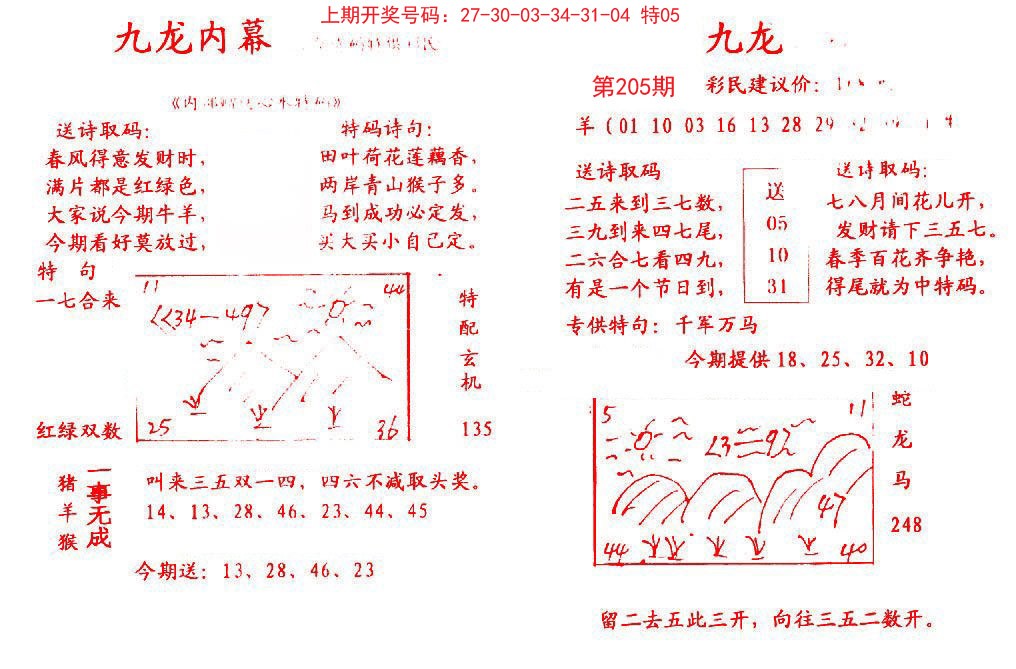 上期开奖号码：27-30-03-34-31-04 特05
九龙内幕
送诗取码：
春风得意发财时，
满片都是红绿色，
大家说今期牛羊，
今期看好莫放过，
特码诗句：
田叶荷花莲藕香，
两岸青山猴子多。
马到成功必定发，
买大买小自己定。
特 句
一七合来
红绿双数
11
44
34—49
25
36
特配玄机
135
猪羊猴
一事无成
叫来三五双一四，四六不减取头奖。
14、13、28、46、23、44、45
今期送：13、28、46、23
九龙
第205期
彩民建议价：
羊（01 10 03 16 13 28 29
送诗取码
二五来到三七数，
三九到来四七尾，
二六合七看四九，
有是一个节日到，
送
05
10
31
送诗取码：
七八月间花儿开，
发财请下三五七。
春季百花齐争艳，
得尾就为中特码。
专供特句：千军万马
今期提供 18、25、32、10
5
11
47
44
40
蛇
龙
马
248
留二去五此三开，向往三五二数开。